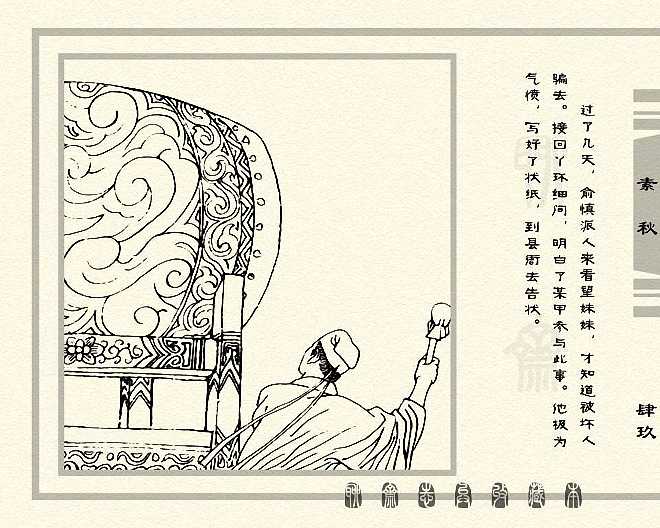 素秋
肆玖
过了几天，俞慎派人来看望妹妹，才知道被坏人
骗去。接回丫环细问，明白了某甲参与此事。他极为
气愤，写好了状纸，到县衙去告状。